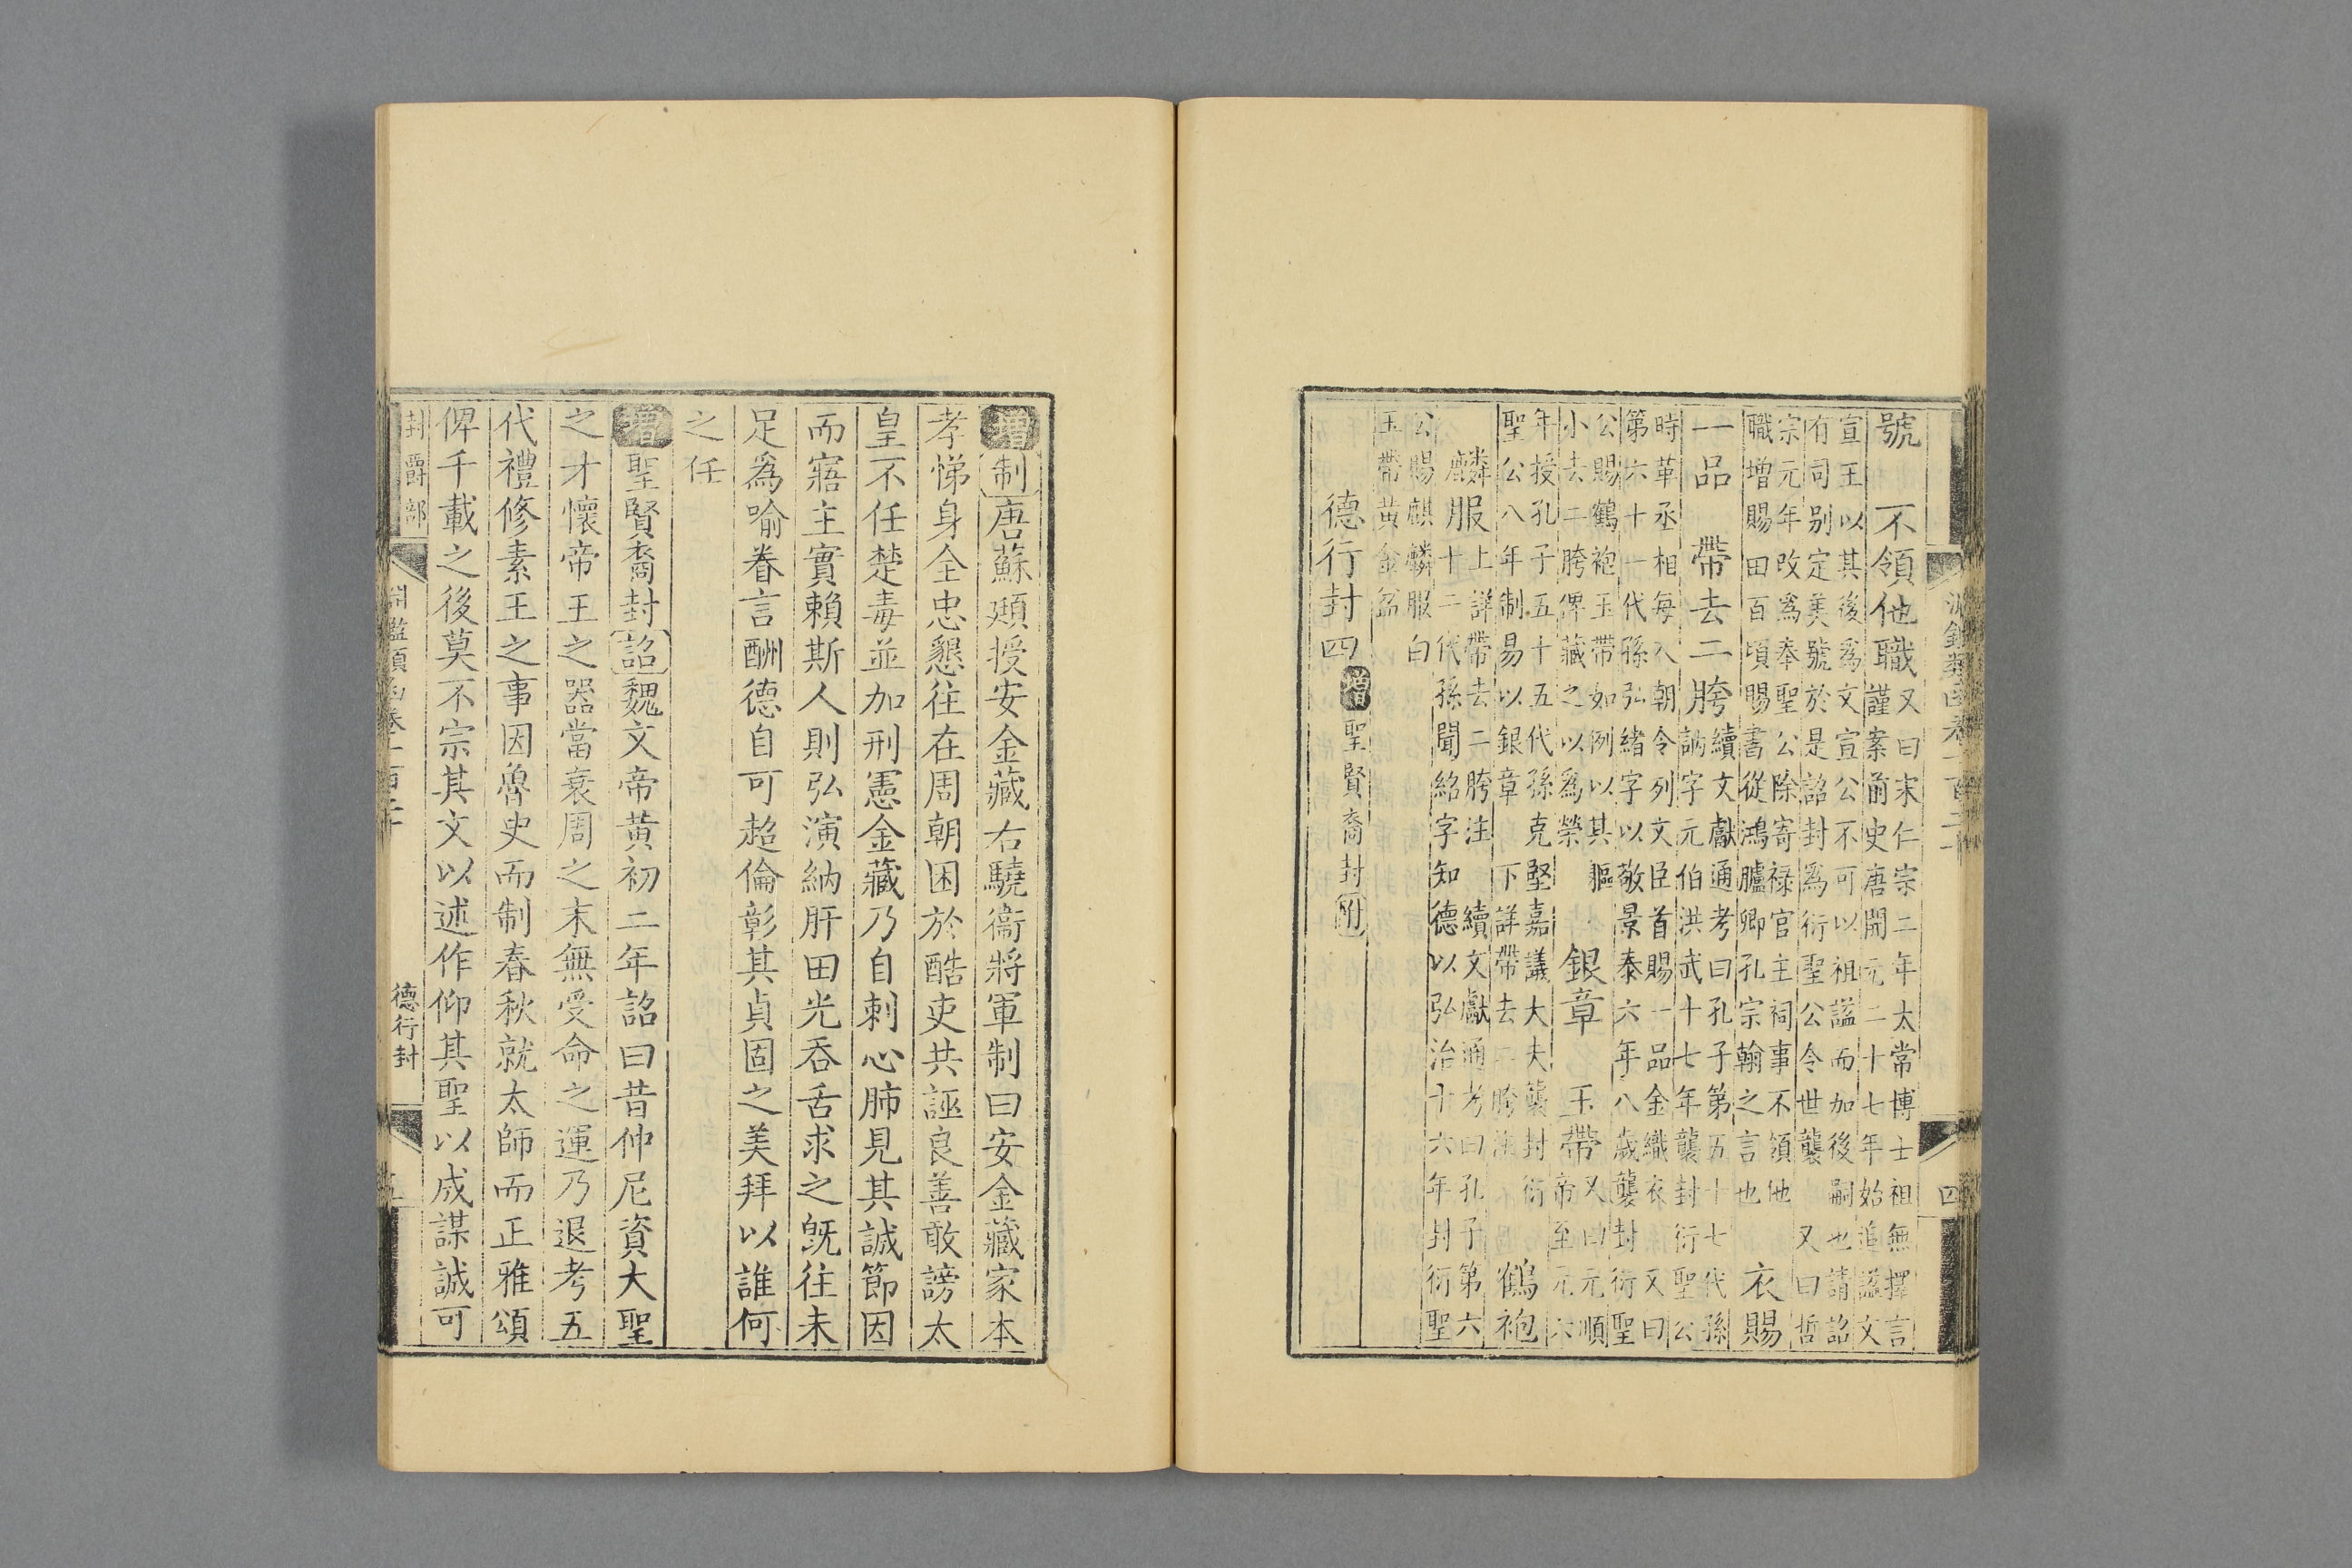 號　不領他職　又曰宋仁宗二年太常博士祖無擇言
謹案前史唐開元二十七年始追諡文
宣王以其後爲文宣公不可以祖諡而加後嗣也請詔
有司别定美號於是詔封爲衍聖公令世襲　又曰哲
宗元年改爲奉聖公除寄禄官主祠事不領他
職增賜田百頃賜書從鴻臚卿孔宗翰之言也　衣賜
一品　帶去二胯　續文獻通考曰孔子第五十七代孫
訥字元伯洪武十七年襲封衍聖公
時革丞相每入朝令列文臣首賜一品金織衣　又曰
第六十一代孫弘緒字以敬景泰六年八歲襲封衍聖
公賜鶴袍玉帶如例以其軀
小去二胯俾藏之以爲榮　銀章　玉帶　又曰元順
帝至元六
年授孔子五十五代孫克堅嘉議大夫襲封衍
聖公八年制易以銀章　下詳帶去二胯注　鶴袍
麒麟服　上詳帶去二胯注　續文獻通考曰孔子第六
十二代孫聞紹字知德以弘治十六年封衍聖
公賜麒麟服白
玉帶黄金盆
德行封四　增　聖賢裔封附
增制唐蘇頲授安金藏右驍衞將軍制曰安金藏家本
孝悌身全忠懇往在周朝困於酷吏共誣良善敢謗太
皇不任楚毒並加刑憲金藏乃自刺心肺見其誠節因
而寤主實賴斯人則弘演納肝田光吞舌求之旣往未
足爲喻眷言酬德自可超倫彰其貞固之美拜以誰何
之任
增聖賢裔封詔魏文帝黄初二年詔曰昔仲尼資大聖
之才懷帝王之器當衰周之末無受命之運乃退考五
代禮修素王之事因魯史而制春秋就太師而正雅頌
俾千載之後莫不宗其文以述作仰其聖以成謀誠可
封爵部　德行封